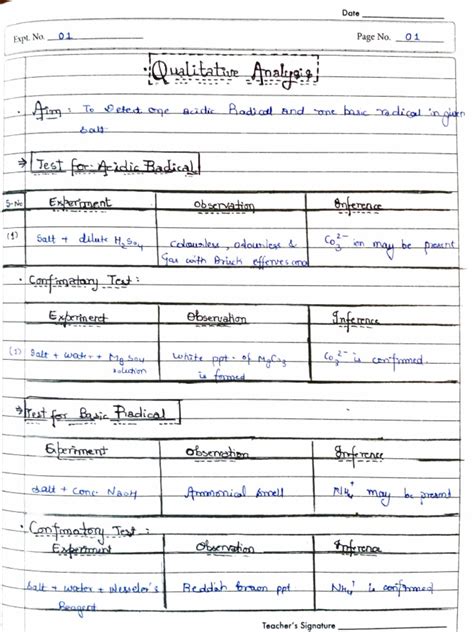 Date
Expt. No. 01 Page No. 01
Qualitative Analysis
Aim : To Detect one acidic Radical and one basic radical in given
salt.
→ Test for Acidic Radical
S.No Experiment Observation Inference
(1) Salt + dilute H2SO4 Colourless, odourless & CO3 2- ion may be present
Gas with Brisk effervescence
• Confimatary Test :
Experiment Observation Inference
(1) Salt + water + MgSO4 White ppt. of MgCO3 CO3 2- is confirmed.
solution is formed
→ Test for Basic Radical
Experiment Observation Inference
Salt + Conc. NaOH Ammonical smell NH4+ may be present
• Confimatory Test :
Experiment Observation Inference
Salt + water + Nessler's Reddish brown ppt NH4+ is confirmed
Reagent
Teacher's Signature